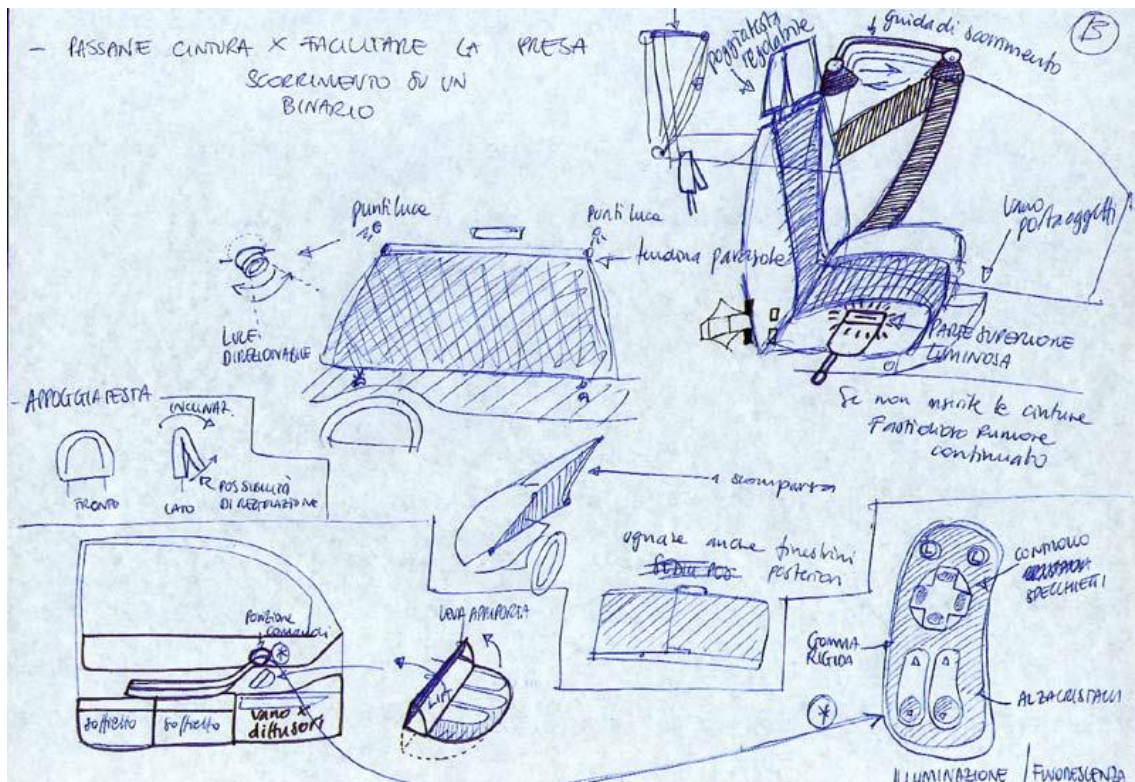 - PASSANE CINTURA X FACILITARE LA PRESA
SCORRIMENTO SU UN
BINARIO
poggiatesta
regolabile
guida di scorrimento
B
punti luce
punti luce
tendina parasole
vano
porta oggetti
LUCE
DIREZIONABILE
PARTE SUPERIORE
LUMINOSA
Se non inserite le cinture
Fastidioso rumore
continuato
- APPOGGIATESTA
INCLINAZ.
FRONTE
LATO
POSSIBILITÀ
DI REGOLAZIONE
a scomparsa
oscurare anche finestrini
posteriori
CONTROLLO
SPECCHIETTI
GOMMA
RIGIDA
ALZACRISTALLI
L
L
POSIZIONE
COMANDI
*
LEVA APRIPORTA
LIFT
soffietto
soffietto
vano x
diffusori
*
ILLUMINAZIONE / FLUORESCENZA